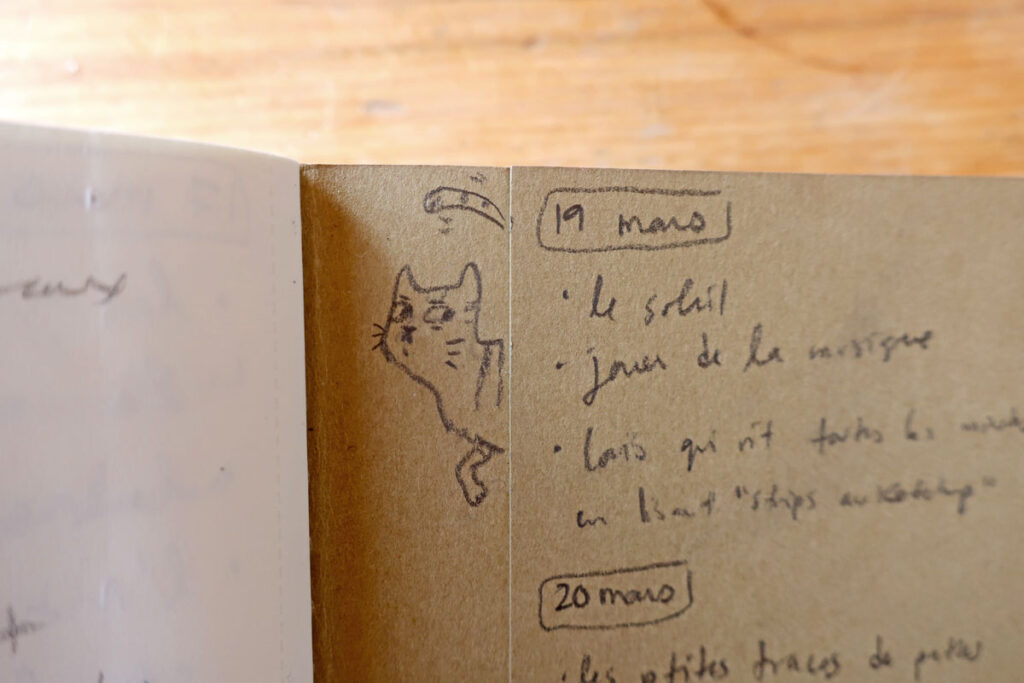 19 mars
• le soleil
• jouer de la musique
• Louis qui rit toutes les
en lisant "strips au ketchup"
20 mars
• les ptites traces de pattes